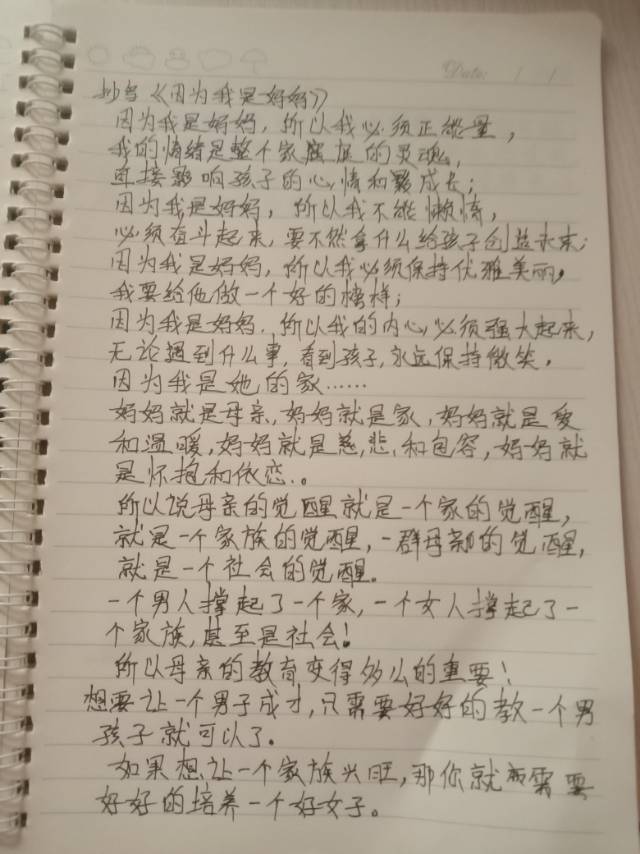 Date: / /
抄写《因为我是妈妈》
因为我是妈妈，所以我必须正能量，
我的情绪是整个家庭的灵魂，
直接影响孩子的心情和成长；
因为我是妈妈，所以我不能懒惰，
必须奋斗起来，要不然拿什么给孩子创益未来；
因为我是妈妈，所以我必须保持优雅美丽，
我要给他做一个好的榜样；
因为我是妈妈，所以我的内心必须强大起来，
无论遇到什么事，看到孩子，永远保持微笑，
因为我是她的家……
妈妈就是母亲，妈妈就是家，妈妈就是爱
和温暖，妈妈就是慈悲和包容，妈妈就
是怀抱和依恋。
所以说母亲的觉醒就是一个家的觉醒，
就是一个家族的觉醒，一群母亲的觉醒，
就是一个社会的觉醒。
一个男人撑起了一个家，一个女人撑起了一
个家族，甚至是社会！
所以母亲的教育变得多么的重要！
想要让一个男子成才，只需要好好的教一个男
孩子就可以了。
如果想让一个家族兴旺，那你就需要
好好的培养一个好女子。